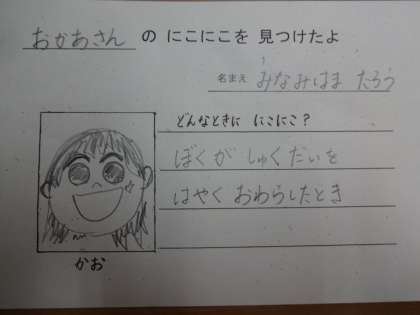 おかあさん の にこにこを 見つけたよ
名まえ みなみはま たろう
どんなときに にこにこ？
ぼくが しゅくだいを
はやく おわらしたとき
かお